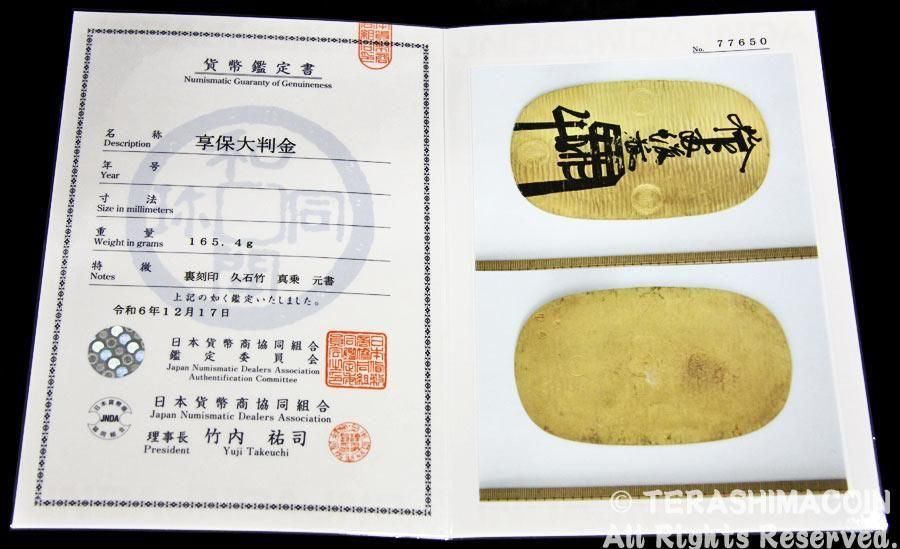 貨幣鑑定書
Numismatic Guaranty of Genuineness
名称 享保大判金
Description
年号
Year
寸法
Size in millimeters
重量
Weight in grams 165.4g
特徴 裏刻印 久石竹 真乗 元書
Notes
上記の如く鑑定いたしました。
令和6年12月17日
日本貨幣商協同組合
鑑定委員会
Japan Numismatic Dealers Association
Authentification Committee
日本貨幣商協同組合
Japan Numismatic Dealers Association
理事長 竹内祐司
President Yuji Takeuchi
JNDA
No. 77650
© TERASHIMACOIN
All Rights Reserved.